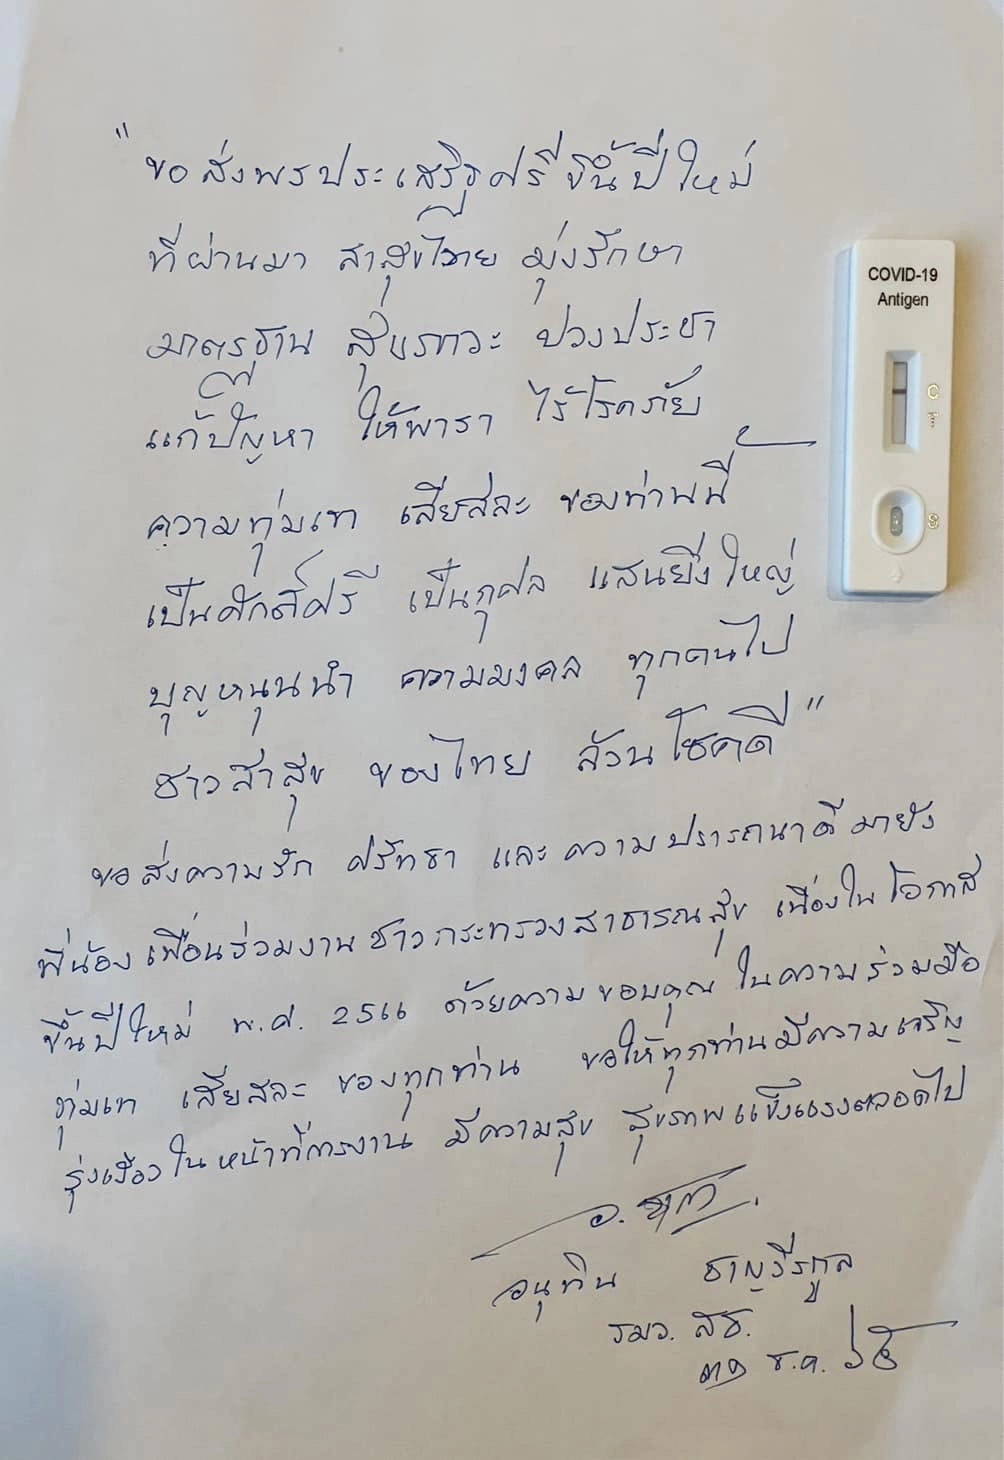 "ขอส่งพรประเสริฐศรีขึ้นปีใหม่
ที่ผ่านมา สาสุขไทย มุ่งรักษา
มาตรฐาน สุขภาวะ ปวงประชา
แก้ปัญหา ให้พารา ไร้โรคภัย
ความทุ่มเท เสียสละ ของท่านนี้
เป็นศักดิ์ศรี เป็นกุศล แสนยิ่งใหญ่
บุญหนุนนำ ความมงคล ทุกคนไป
ชาวสาสุข ของไทย ล้วนโชคดี"
ขอส่งความรัก ศรัทธา และความปรารถนาดีมายัง
พี่น้องเพื่อนร่วมงานชาวกระทรวงสาธารณสุข เนื่องในโอกาส
ขึ้นปีใหม่ พ.ศ. 2566 ด้วยความขอบคุณในความร่วมมือ
ทุ่มเท เสียสละ ของทุกท่าน ขอให้ทุกท่านมีความเจริญ
รุ่งเรืองในหน้าที่การงาน มีความสุข สุขภาพแข็งแรงตลอดไป
อนุทิน ชาญวีรกูล
รมว. สธ.
๓๑ ธ.ค. ๖๕
COVID-19
Antigen
C
T
S